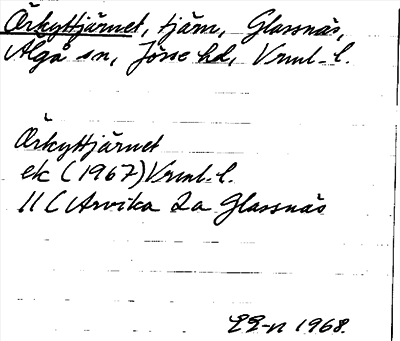 Örkyttjärnet, tjärn, Glassnäs,
Älgå sn, Jösse hd, Vrml. l.
Örkyttjärnet
ek (1967) Vrml. l.
11 C Arvika 2a Glassnäs
1968.